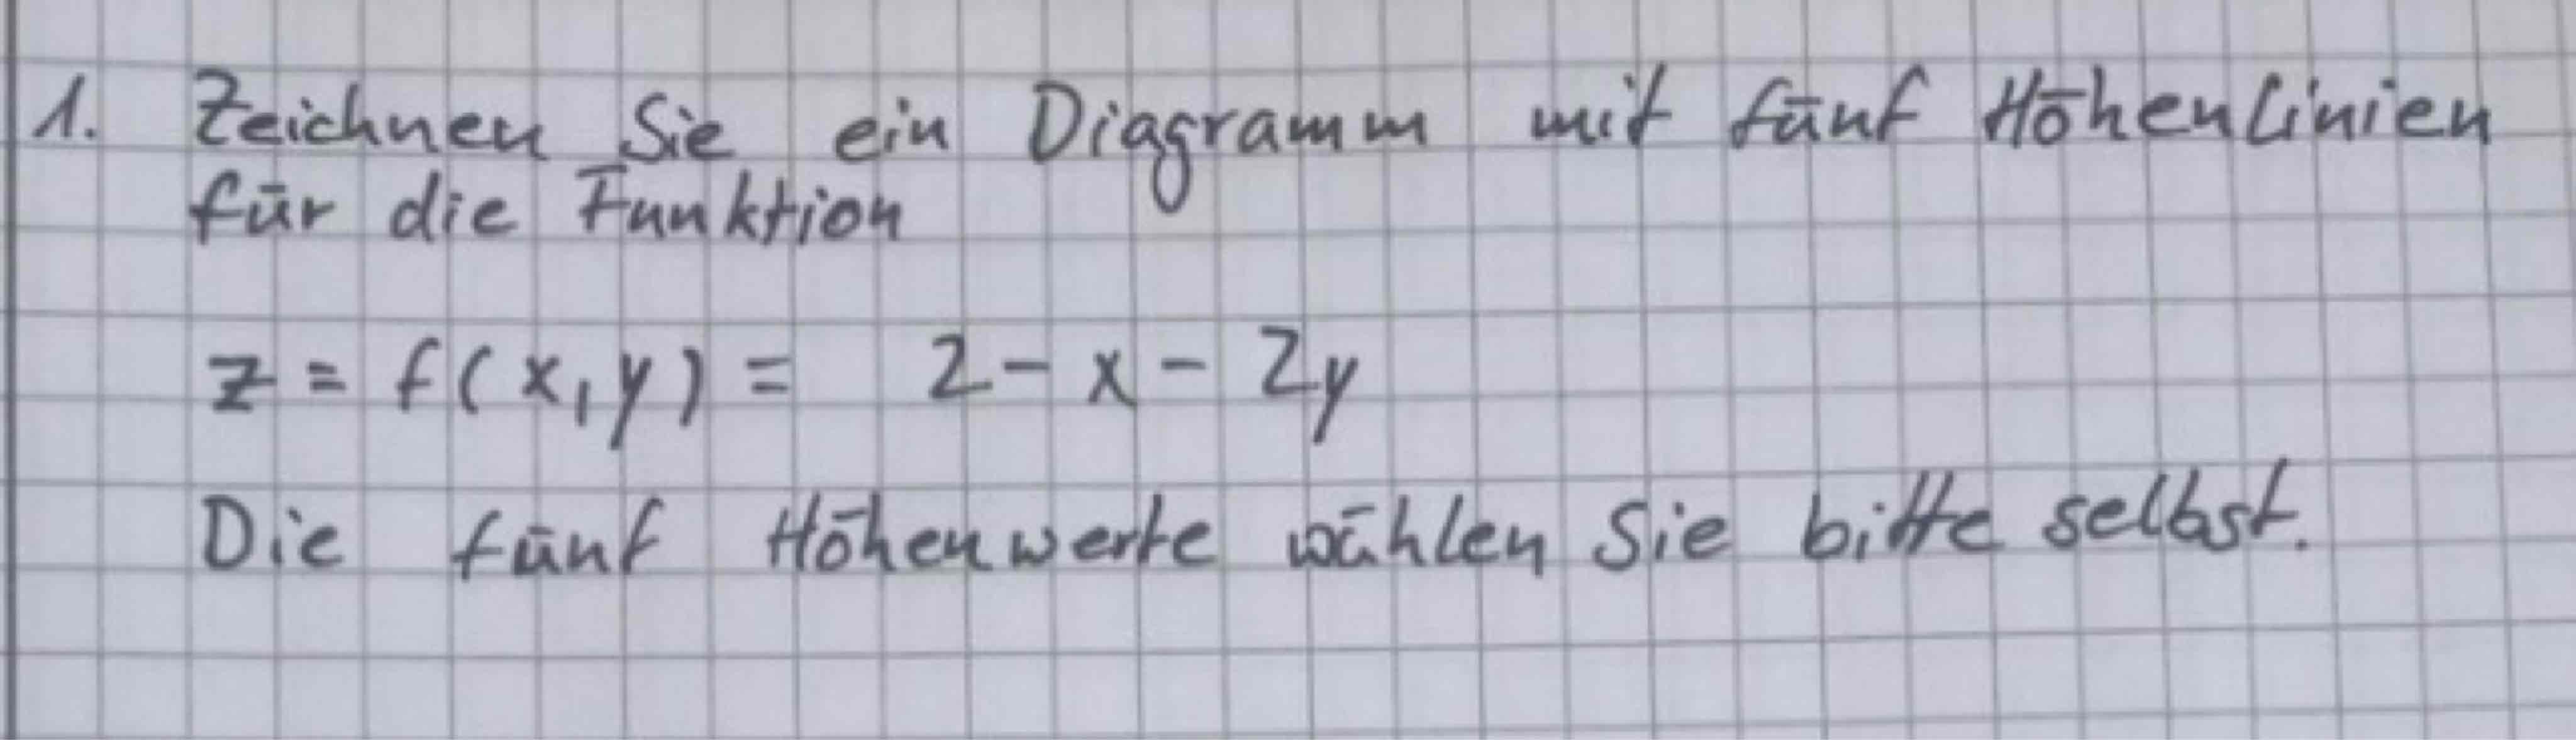 1. Zeichnen Sie ein Diagramm mit fünf Höhenlinien
für die Funktion
z = f(x,y) = 2-x-2y
Die fünf Höhenwerte wählen Sie bitte selbst.